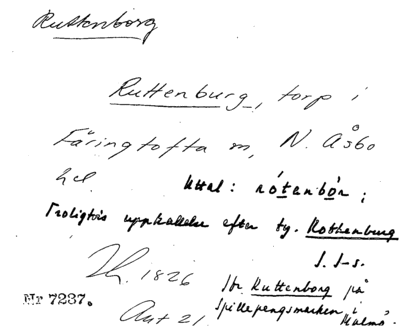 Ruttenborg
Ruttenburg, torp i
Färingtofta m, N. Åsbo
hd.
Uttal: rótanbór;
Troligtvis uppkallelse efter ty. Rothenburg
J. S-s.
Jfr Ruttenborg på
Spillepengsmarken i Malmö.
1826
Nr 7237.
Ant 21